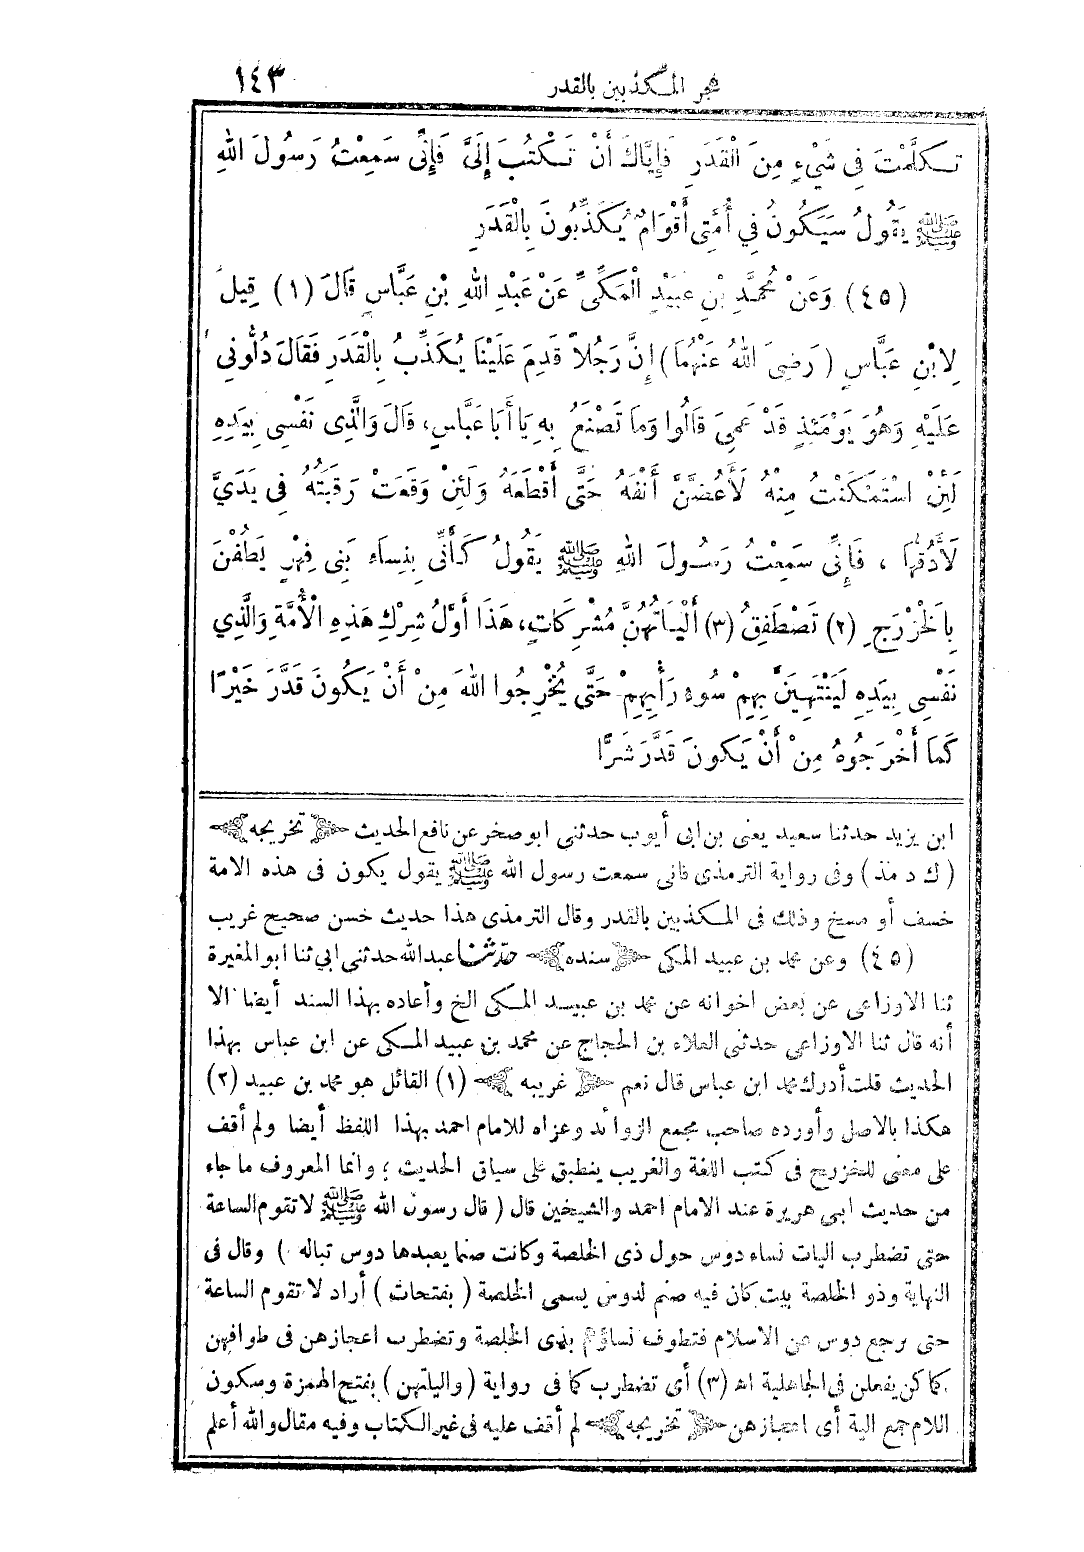 هجر المكذبين بالقدر ١٤٣
تَكَلَّمْتَ فِى شَيْءٍ مِنَ الْقَدَرِ فَإِيَّاكَ أَنْ تَكْتُبَ إِلَىَّ فَإِنِّى سَمِعْتُ رَسُولَ اللهِ
ﷺ يَقُولُ سَيَكُونُ فِي أُمَّتِى أَقْوَامٌ يُكَذِّبُونَ بِالْقَدَرِ
(٤٥) وَعَنْ مُحَمَّدِ بْنِ عُبَيْدٍ الْمَكِّىِّ عَنْ عَبْدِ اللهِ بْنِ عَبَّاسٍ قَالَ (١) قِيلَ
لِابْنِ عَبَّاسٍ (رَضِىَ اللهُ عَنْهُمَا) إِنَّ رَجُلاً قَدِمَ عَلَيْنَا يُكَذِّبُ بِالْقَدَرِ فَقَالَ دُلُّونِي
عَلَيْهِ وَهُوَ يَوْمَئِذٍ قَدْ عَمِىَ قَالُوا وَمَا تَصْنَعُ بِهِ يَا أَبَا عَبَّاسٍ، قَالَ وَالَّذِى نَفْسِى بِيَدِهِ
لَئِنْ اسْتَمْكَنْتُ مِنْهُ لَأَعُضَّنَّ أَنْفَهُ حَتَّى أَقْطَعَهُ وَلَئِنْ وَقَعَتْ رَقَبَتُهُ فِى يَدَيَّ
لَأَدُقَّنَّهَا ، فَإِنِّى سَمِعْتُ رَسُولَ اللهِ ﷺ يَقُولُ كَأَنِّى بِنِسَاءِ بَنِى فِهْرٍ يَطُفْنَ
بِالْخَزْرَجِ (٢) تَصْطَفِقُ (٣) أَلْيَاتُهُنَّ مُشْرِكَاتٍ، هَذَا أَوَّلُ شِرْكِ هَذِهِ الْأُمَّةِ وَالَّذِي
نَفْسِى بِيَدِهِ لَيَنْتَهِيَنَّ بِهِمْ سُوءُ رَأْيِهِمْ حَتَّى يُخْرِجُوا اللهَ مِنْ أَنْ يَكُونَ قَدَّرَ خَيْرًا
كَمَا أَخْرَجُوهُ مِنْ أَنْ يَكُونَ قَدَّرَ شَرًّا
ابن يزيد حدثنا سعيد يعنى بن ابى أيوب حدثنى ابو صخر عن نافع الحديث ﴿تخريجه﴾
(ك د مذ) وفى رواية الترمذى فانى سمعت رسول الله ﷺ يقول يكون فى هذه الامة
خسف أو مسخ وذلك فى المكذبين بالقدر وقال الترمذى هذا حديث حسن صحيح غريب
(٤٥) وعن محمد بن عبيد المكى ﴿سنده﴾ حدثنا عبدالله حدثنى ابي ثنا ابو المغيرة
ثنا الاوزاعى عن بعض اخوانه عن محمد بن عبيد المكى الخ وأعاده بهذا السند أيضا الا
أنه قال ثنا الاوزاعى حدثنى العلاء بن الحجاج عن محمد بن عبيد المكى عن ابن عباس بهذا
الحديث قلت أدرك محمد ابن عباس قال نعم ﴿غريبه﴾ (١) القائل هو محمد بن عبيد (٢)
هكذا بالاصل وأورده صاحب مجمع الزوائد وعزاه للامام احمد بهذا اللفظ أيضا ولم أقف
على معنى للخزرج فى كتب اللغة والغريب ينطبق على سياق الحديث ؛ وانما المعروف ما جاء
من حديث ابى هريرة عند الامام احمد والشيخين قال (قال رسول الله ﷺ لا تقوم الساعة
حتى تضطرب اليات نساء دوس حول ذى الخلصة وكانت صنما يعبدها دوس تباله) وقال فى
النهاية وذو الخلصة بيت كان فيه صنم لدوس يسمى الخلصة (بفتحات) أراد لا تقوم الساعة
حتى ترجع دوس عن الاسلام فتطوف نساؤهم بذى الخلصة وتضطرب اعجازهن فى طوافهن
كما كن يفعلن فى الجاهلية اه (٣) أى تضطرب كما فى رواية (والياتهن) بفتح الهمزة وسكون
اللام جمع الية أى اعجازهن ﴿تخريجه﴾ لم أقف عليه فى غير الكتاب وفيه مقال والله أعلم